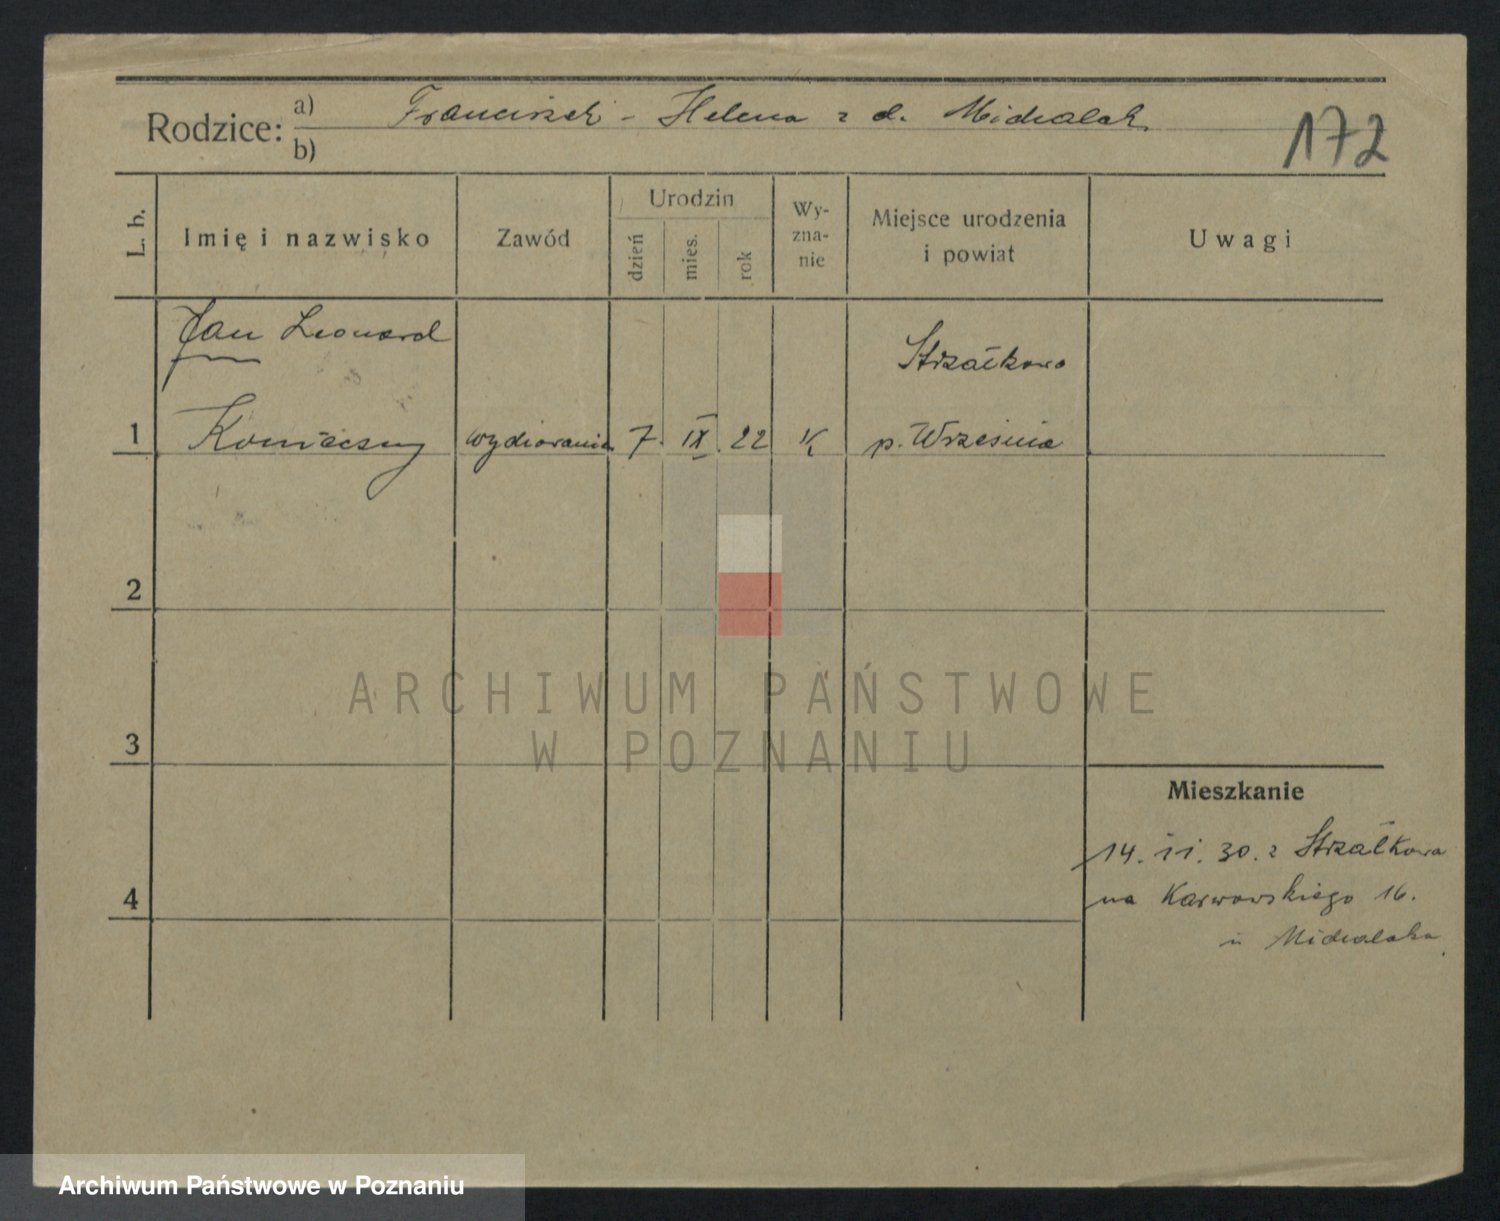 Rodzice: a) Franciszek - Helena z d. Michalak
b)
172
L. b.
Imię i nazwisko
Zawód
Urodzin
dzień
mies.
rok
Wy-
zna-
nie
Miejsce urodzenia
i powiat
Uwagi
Jan Leonard
Strzałkowo
1 Konieczny 7. IX. 22 K p. Września
2
ARCHIWUM PAŃSTWOWE
W POZNANIU
3
Mieszkanie
14. 11. 30. z Strzałkowa
4
na Karwowskiego 16.
u Michalaka.
Archiwum Państwowe w Poznaniu